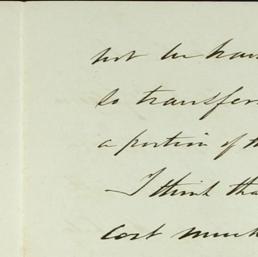 not be
to transfer
a portion of
I think tha
cost much